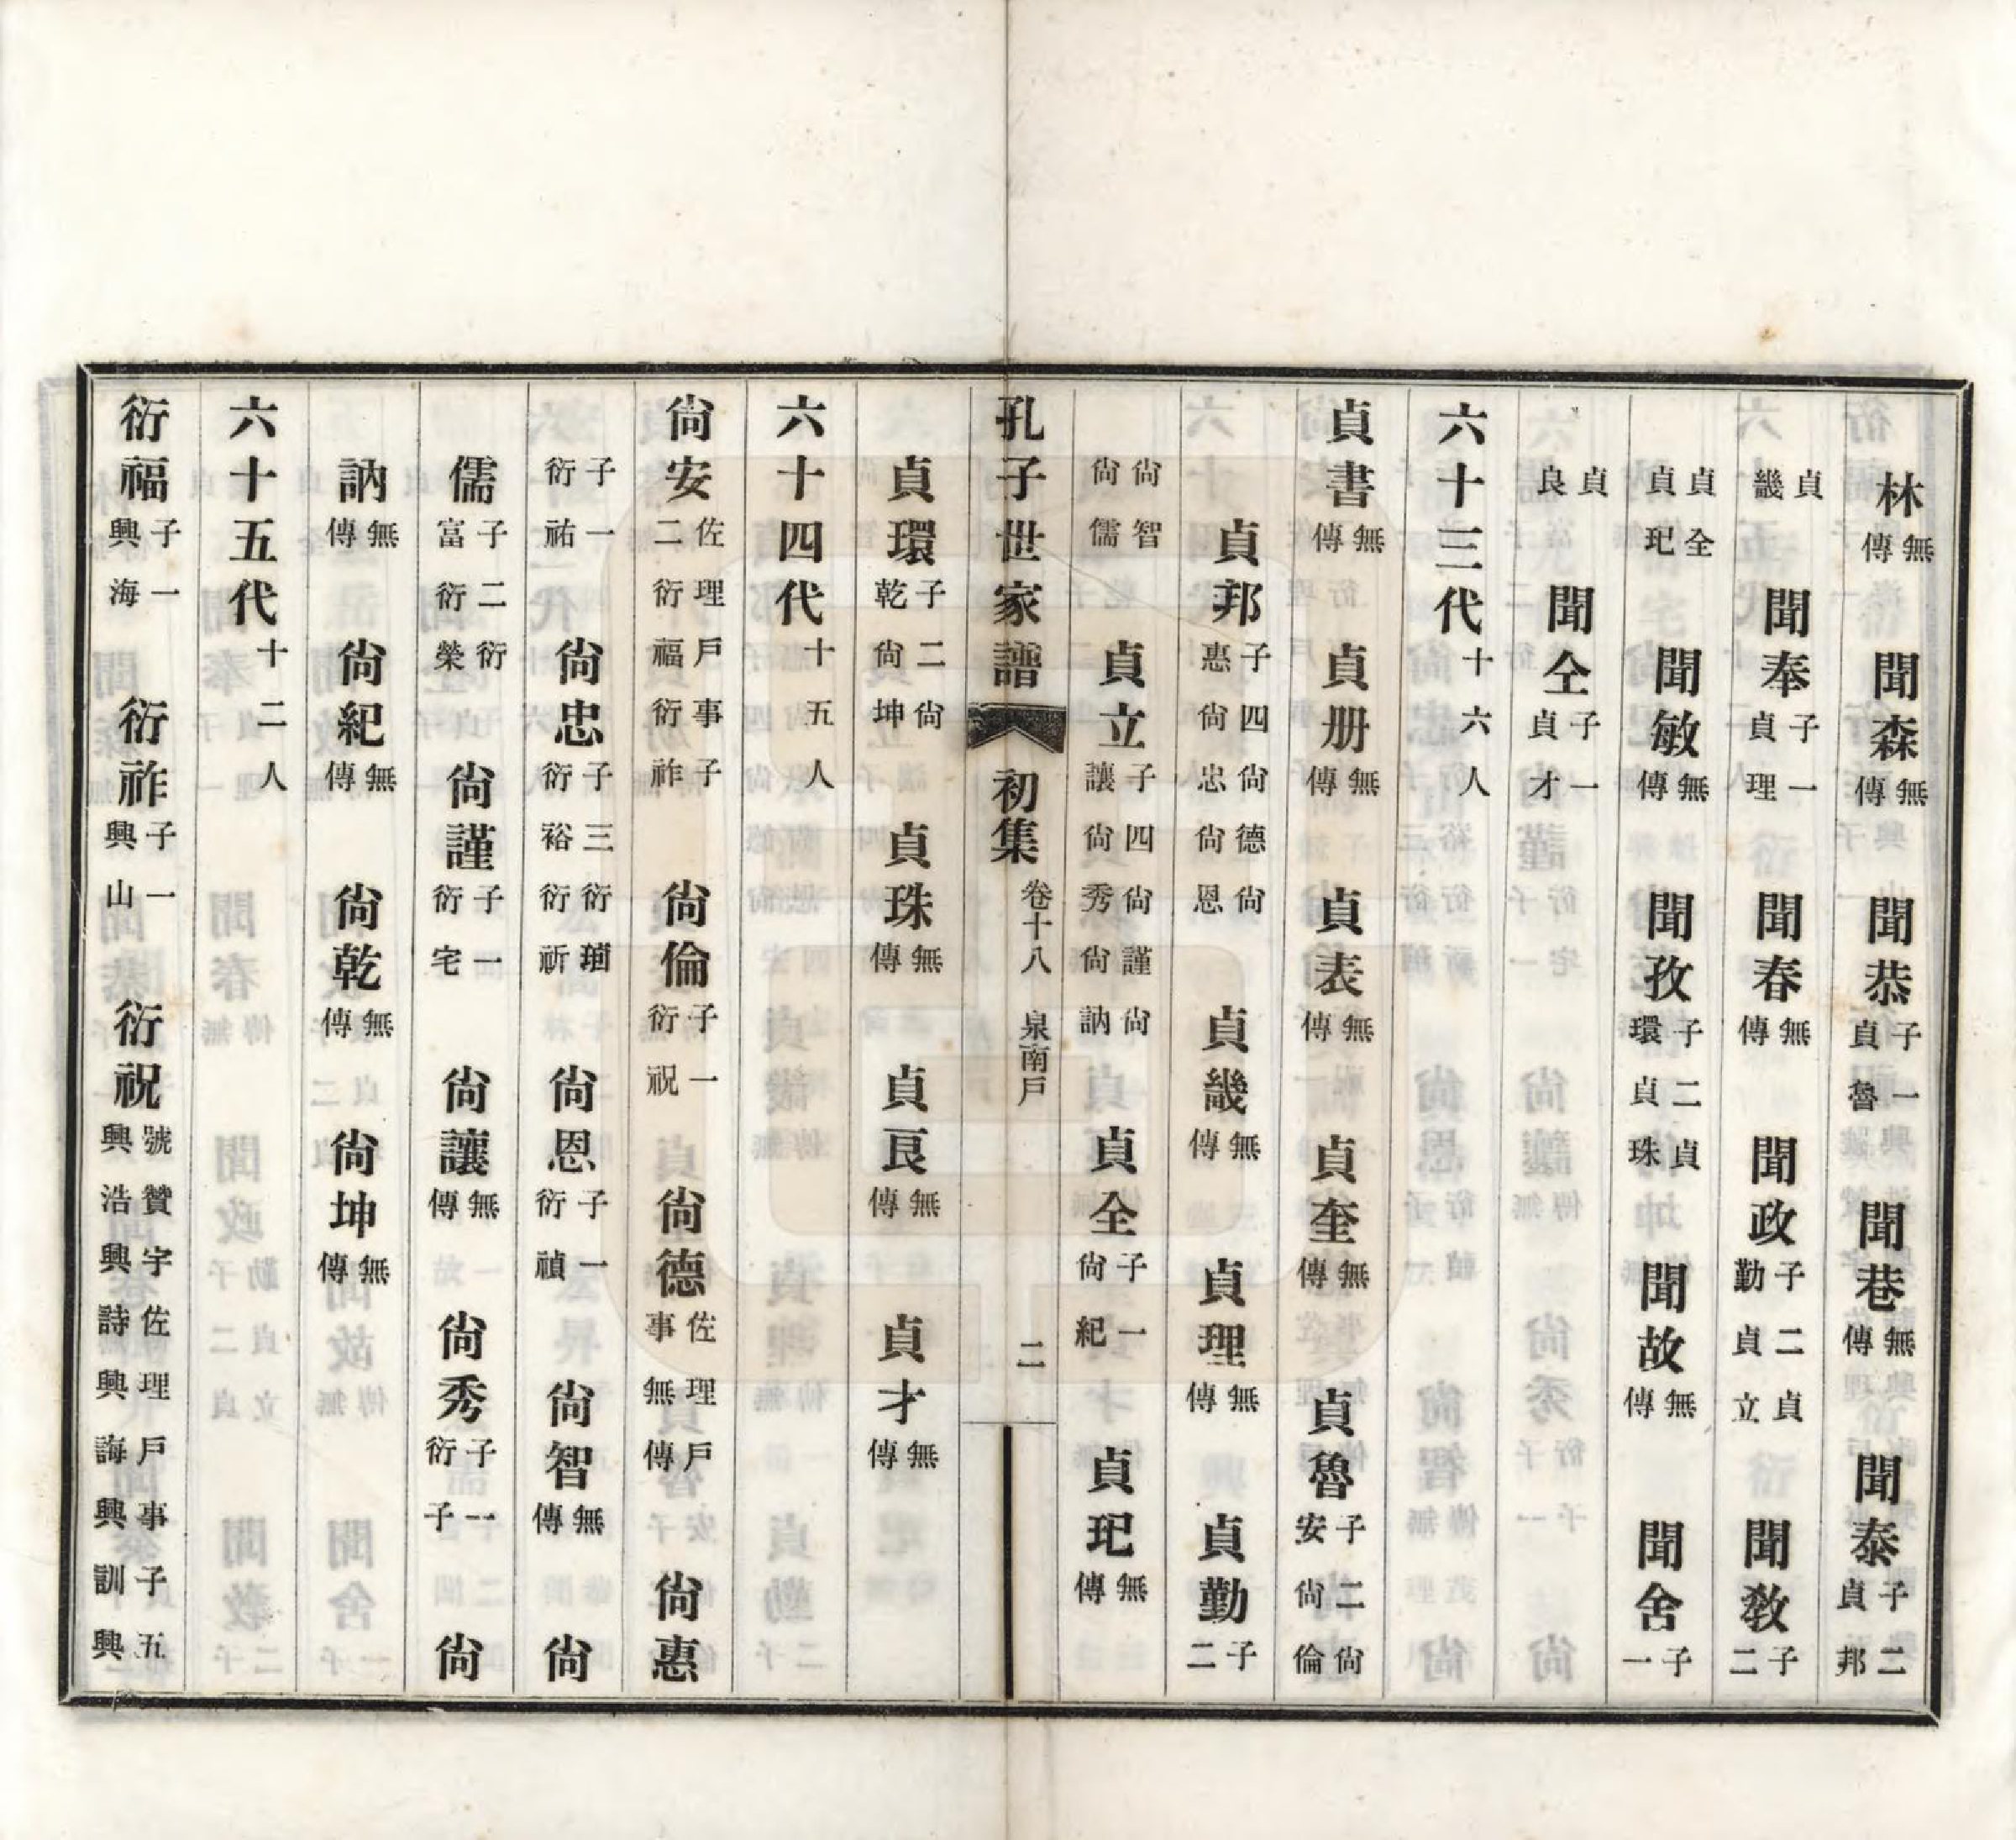 林無傳　聞森無傳　聞恭子一貞魯　聞巷無傳　聞泰子二貞邦
貞畿　聞奉子一貞理　聞春無傳　聞政子二貞勤貞立　聞敎子二
貞全貞玘　聞敏無傳　聞孜子二貞環貞珠　聞故無傳　聞舍子一
貞良　聞仝子一貞才
六十三代十六人
貞書無傳　貞册無傳　貞表無傳　貞奎無傳　貞魯子二尙安尙倫
貞邦子四尙德尙惠尙忠尙恩　貞畿無傳　貞理無傳　貞勤子二
尙智尙儒　貞立子四尙謹尙讓尙秀尙訥　貞全子一尙紀　貞玘無傳
孔子世家譜　初集　卷十八　泉南戶　二
貞環子二尙乾尙坤　貞珠無傳　貞良無傳　貞才無傳
六十四代十五人
尙安佐理戶事子二衍福衍祚　尙倫子一衍祝　尙德佐理戶事無傳　尙惠
子一衍祐　尙忠子三衍衍裕衍祈　尙恩子一衍禎　尙智無傳　尙
儒子二衍富衍榮　尙謹子一衍宅　尙讓無傳　尙秀子一衍子　尙
訥無傳　尙紀無傳　尙乾無傳　尙坤無傳
六十五代十二人
衍福子一興海　衍祚子一興山　衍祝號贊宇佐理戶事子五興浩興詩興誨興訓興